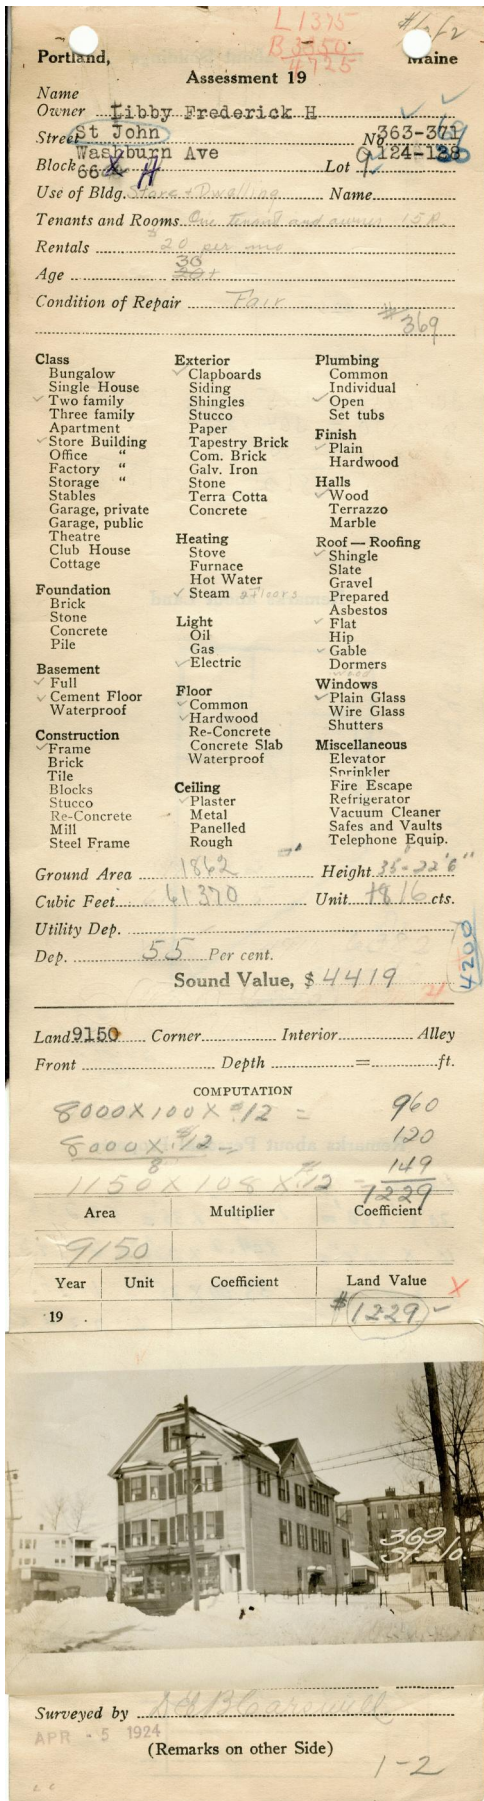 L 1375
B 3350
4725
#1 of 2
Portland, Maine
Assessment 19
Name
Owner Libby Frederick H
Street St John No 363-371
Washburn Ave 124-128
Block 66 A Lot
Use of Bldg. Store + Dwelling Name
Tenants and Rooms One tenant and owner 15 R.
Rentals $20 per mo
Age 30
Condition of Repair Fair
#369
Class
Bungalow
Single House
✓ Two family
Three family
Apartment
✓ Store Building
Office "
Factory "
Storage "
Stables
Garage, private
Garage, public
Theatre
Club House
Cottage
Foundation
Brick
Stone
Concrete
Pile
Basement
✓ Full
✓ Cement Floor
Waterproof
Construction
✓ Frame
Brick
Tile
Blocks
Stucco
Re-Concrete
Mill
Steel Frame
Exterior
✓ Clapboards
Siding
Shingles
Stucco
Paper
Tapestry Brick
Com. Brick
Galv. Iron
Stone
Terra Cotta
Concrete
Heating
Stove
Furnace
Hot Water
✓ Steam 2 Floors
Light
Oil
Gas
✓ Electric
Floor
✓ Common
✓ Hardwood
Re-Concrete
Concrete Slab
Waterproof
Ceiling
✓ Plaster
Metal
Panelled
Rough
Plumbing
Common
Individual
✓ Open
Set tubs
Finish
✓ Plain
Hardwood
Halls
✓ Wood
Terrazzo
Marble
Roof — Roofing
✓ Shingle
Slate
Gravel
Prepared
Asbestos
✓ Flat
Hip
✓ Gable
Dormers
Windows
✓ Plain Glass
Wire Glass
Shutters
Miscellaneous
Elevator
Sprinkler
Fire Escape
Refrigerator
Vacuum Cleaner
Safes and Vaults
Telephone Equip.
Ground Area 1862 Height 35'-22'6"
Cubic Feet 61370 Unit 16 cts.
Utility Dep.
Dep. 55 Per cent.
4200
Sound Value, $ 4419
Land 9150 Corner Interior Alley
Front Depth = ft.
COMPUTATION
8000 X 100 X .12 = 960
8000 X .12 = 120
8
1150 X 108 X .12 = 149
1229
Area Multiplier Coefficient
9150
Year Unit Coefficient Land Value X
19 $1229 ✓
369
St. Jo.
Surveyed by
APR - 5 1924
(Remarks on other Side)
1-2